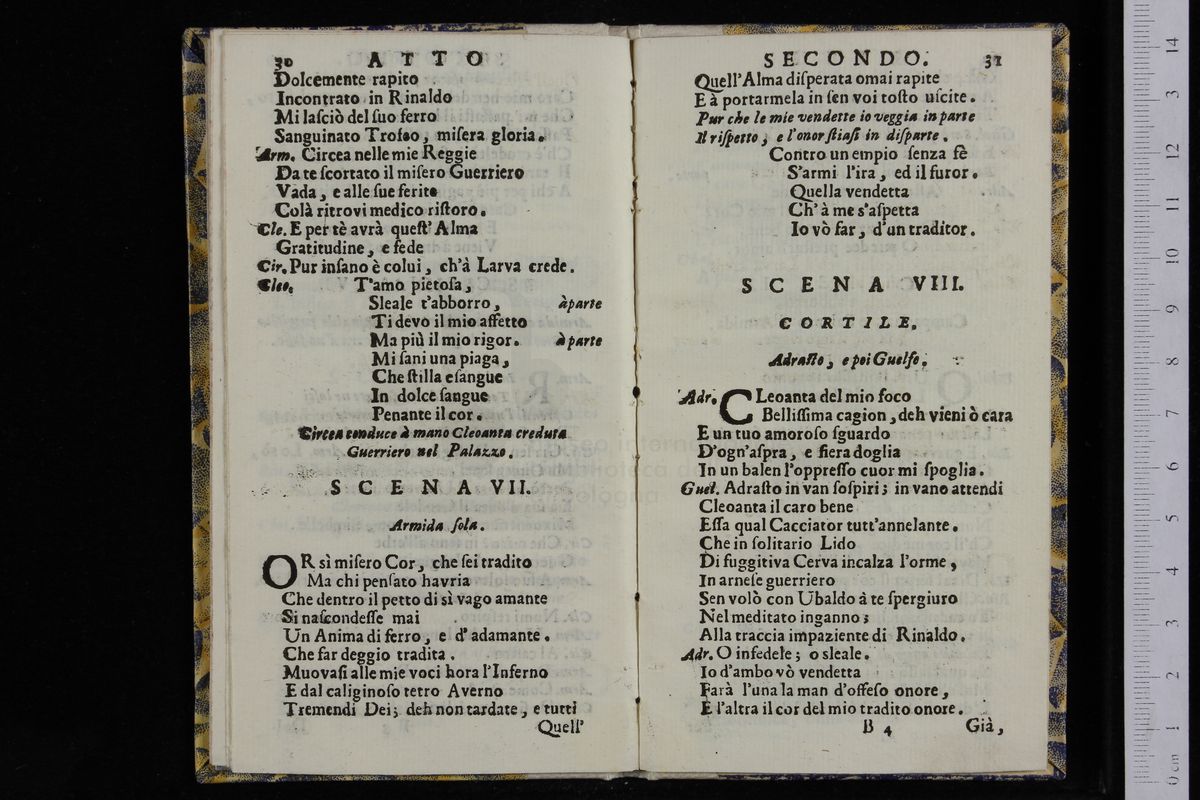 30 ATTO
Dolcemente rapito
Incontrato in Rinaldo
Mi laſciò del ſuo ferro
Sanguinato Trofeo, miſera gloria.
Arm. Circea nelle mie Reggie
Da te ſcortato il miſero Guerriero
Vada, e alle ſue ferite
Colà ritrovi medico riſtoro.
Cle. E per tè avrà queſt' Alma
Gratitudine, e fede
Cir. Pur inſano è colui, ch'à Larva crede.
Cleo. T'amo pietoſa,
Sleale t'abborro, à parte
Ti devo il mio affetto
Ma più il mio rigor. à parte
Mi ſani una piaga,
Che ſtilla eſangue
In dolce ſangue
Penante il cor.
Circea conduce à mano Cleoanta creduta
Guerriero nel Palazzo.
SCENA VII.
Armida ſola.
OR sì miſero Cor, che ſei tradito
Ma chi penſato havria
Che dentro il petto di sì vago amante
Si naſcondeſſe mai
Un Anima di ferro, e d' adamante.
Che far deggio tradita.
Muovaſi alle mie voci hora l'Inferno
E dal caliginoſo tetro Averno
Tremendi Dei; deh non tardate, e tutti
Quell'
SECONDO. 31
Quell'Alma diſperata omai rapite
E à portarmela in ſen voi toſto uſcite.
Pur che le mie vendette io veggia in parte
Il riſpetto, e l'onor ſtiaſi in diſparte.
Contro un empio ſenza fè
S'armi l'ira, ed il furor.
Quella vendetta
Ch' à me s'aſpetta
Io vò far, d'un traditor.
SCENA VIII.
CORTILE.
Adraſto, e poi Guelfo.
Adr. CLeoanta del mio foco
Belliſſima cagion, deh vieni ò cara
E un tuo amoroſo ſguardo
D'ogn'aſpra, e fiera doglia
In un balen l'oppreſſo cuor mi ſpoglia.
Guel. Adraſto in van ſoſpiri; in vano attendi
Cleoanta il caro bene
Eſſa qual Cacciator tutt'annelante.
Che in ſolitario Lido
Di fuggitiva Cerva incalza l'orme,
In arneſe guerriero
Sen volò con Ubaldo à te ſpergiuro
Nel meditato inganno;
Alla traccia impaziente di Rinaldo.
Adr. O infedele; o sleale.
Io d'ambo vò vendetta
Farà l'una la man d'offeſo onore,
E l'altra il cor del mio tradito onore.
B 4 Già,